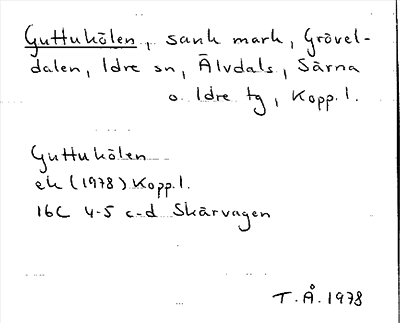 Guttuhölen, sank mark, Grövel-
dalen, Idre sn, Älvdals, Särna
o. Idre tg, Kopp. l.
Guttuhölen
ek (1978) Kopp. l.
16C 4-5 c-d Skärvagen
T.Å. 1978